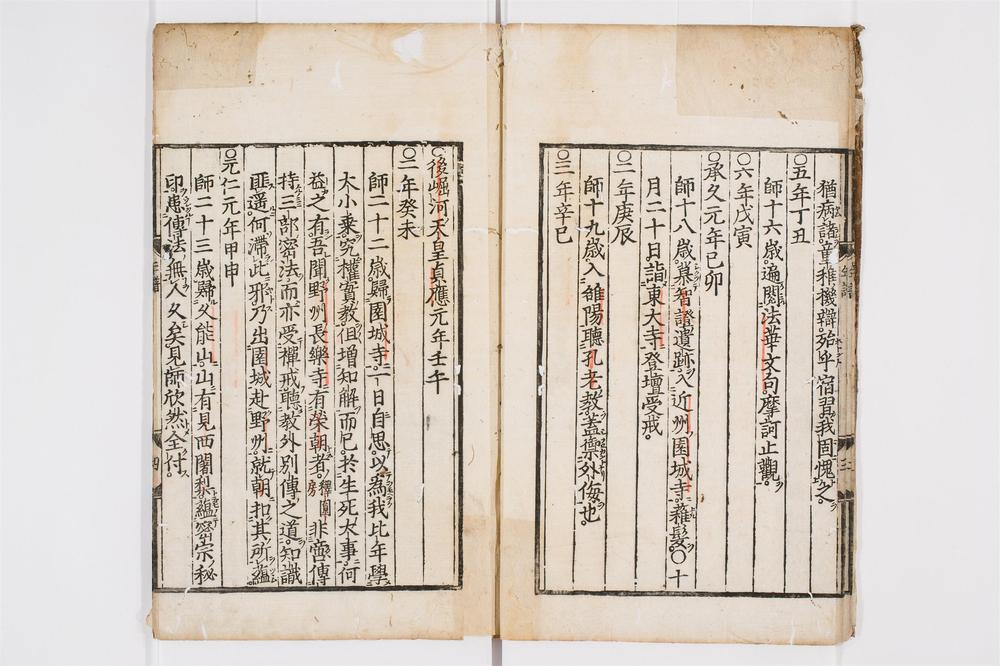 猶病諸童稚機辯殆乎宿習我固愧之
〇五年丁丑
師十六歳遍閲法華文句摩訶止觀
〇六年戊寅
〇承久元年己卯
師十八歳慕智證遺跡入近州園城寺薙髮〇十
月二十日詣東大寺登壇受戒
〇二年庚辰
師十九歳入雒陽聽孔老教蓋禦外侮也
〇三年辛巳
〇後堀河天皇貞應元年壬午
〇二年癸未
師二十二歳歸園城寺一日自思以為我比年學
大小乘究權實教但增知解而已於生死大事何
益之有吾聞野州長樂寺有榮朝者釋圓房非啻傳
持三部密法而亦受禪戒聽教外別傳之道知識
匪遥何滯此邪乃出園城赴野州就朝扣其所蘊
〇元仁元年甲申
師二十三歳歸久能山山有見西闍梨蘊密宗秘
印患傳法無人久矣見師欣然全付
年譜
三
四